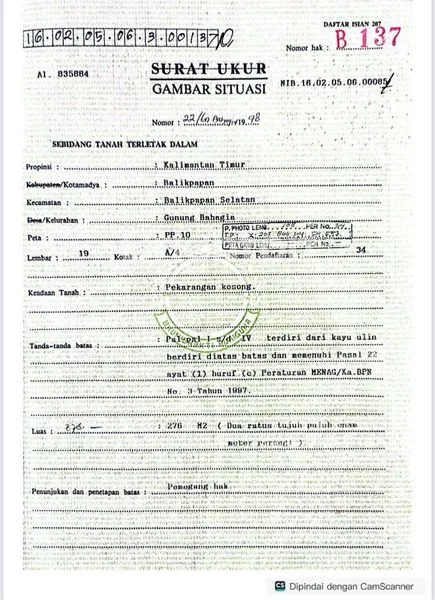 DAFTAR ISIAN 207
16.02.05.06.3.00137
Nomor hak : B 137
AI. 835884
SURAT UKUR
GAMBAR SITUASI
NIB.16.02.05.06.00085
Nomor : 22/ 19.98
SEBIDANG TANAH TERLETAK DALAM
Propinsi : : Kalimantan Timur
Kabupaten/Kotamadya : Balikpapan
Kecamatan : : Balikpapan Selatan
Desa/Kelurahan : Gunung Bahagia
Peta : : PP.10
P. PHOTO LEMB. PER No.
PETA GARIS LEMB. PER No. -
Lembar : 19 Kotak : A/4 Nomor Pendaftaran : 34
Keadaan Tanah : : Pekarangan kosong.
Tanda-tanda batas : : Pal-pal I s/d IV terdiri dari kayu ulin
berdiri diatas batas dan memenuhi Pasal 22
ayat (1) huruf (c) Peraturan MENAG/Ka.BPN
No. 3 Tahun 1997.
Luas : 276 — : 276 M2 ( Dua ratus tujuh puluh enam
meter persegi ).
Penunjukan dan penetapan batas : Pemegang hak.
CS Dipindai dengan CamScanner